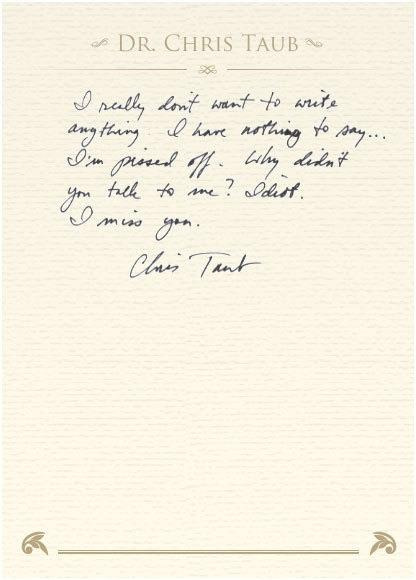 DR. CHRIS TAUB
I really don't want to write
anything. I have nothing to say...
I'm pissed off. Why didn't
you talk to me? Idiot.
I miss you.
Chris Taub